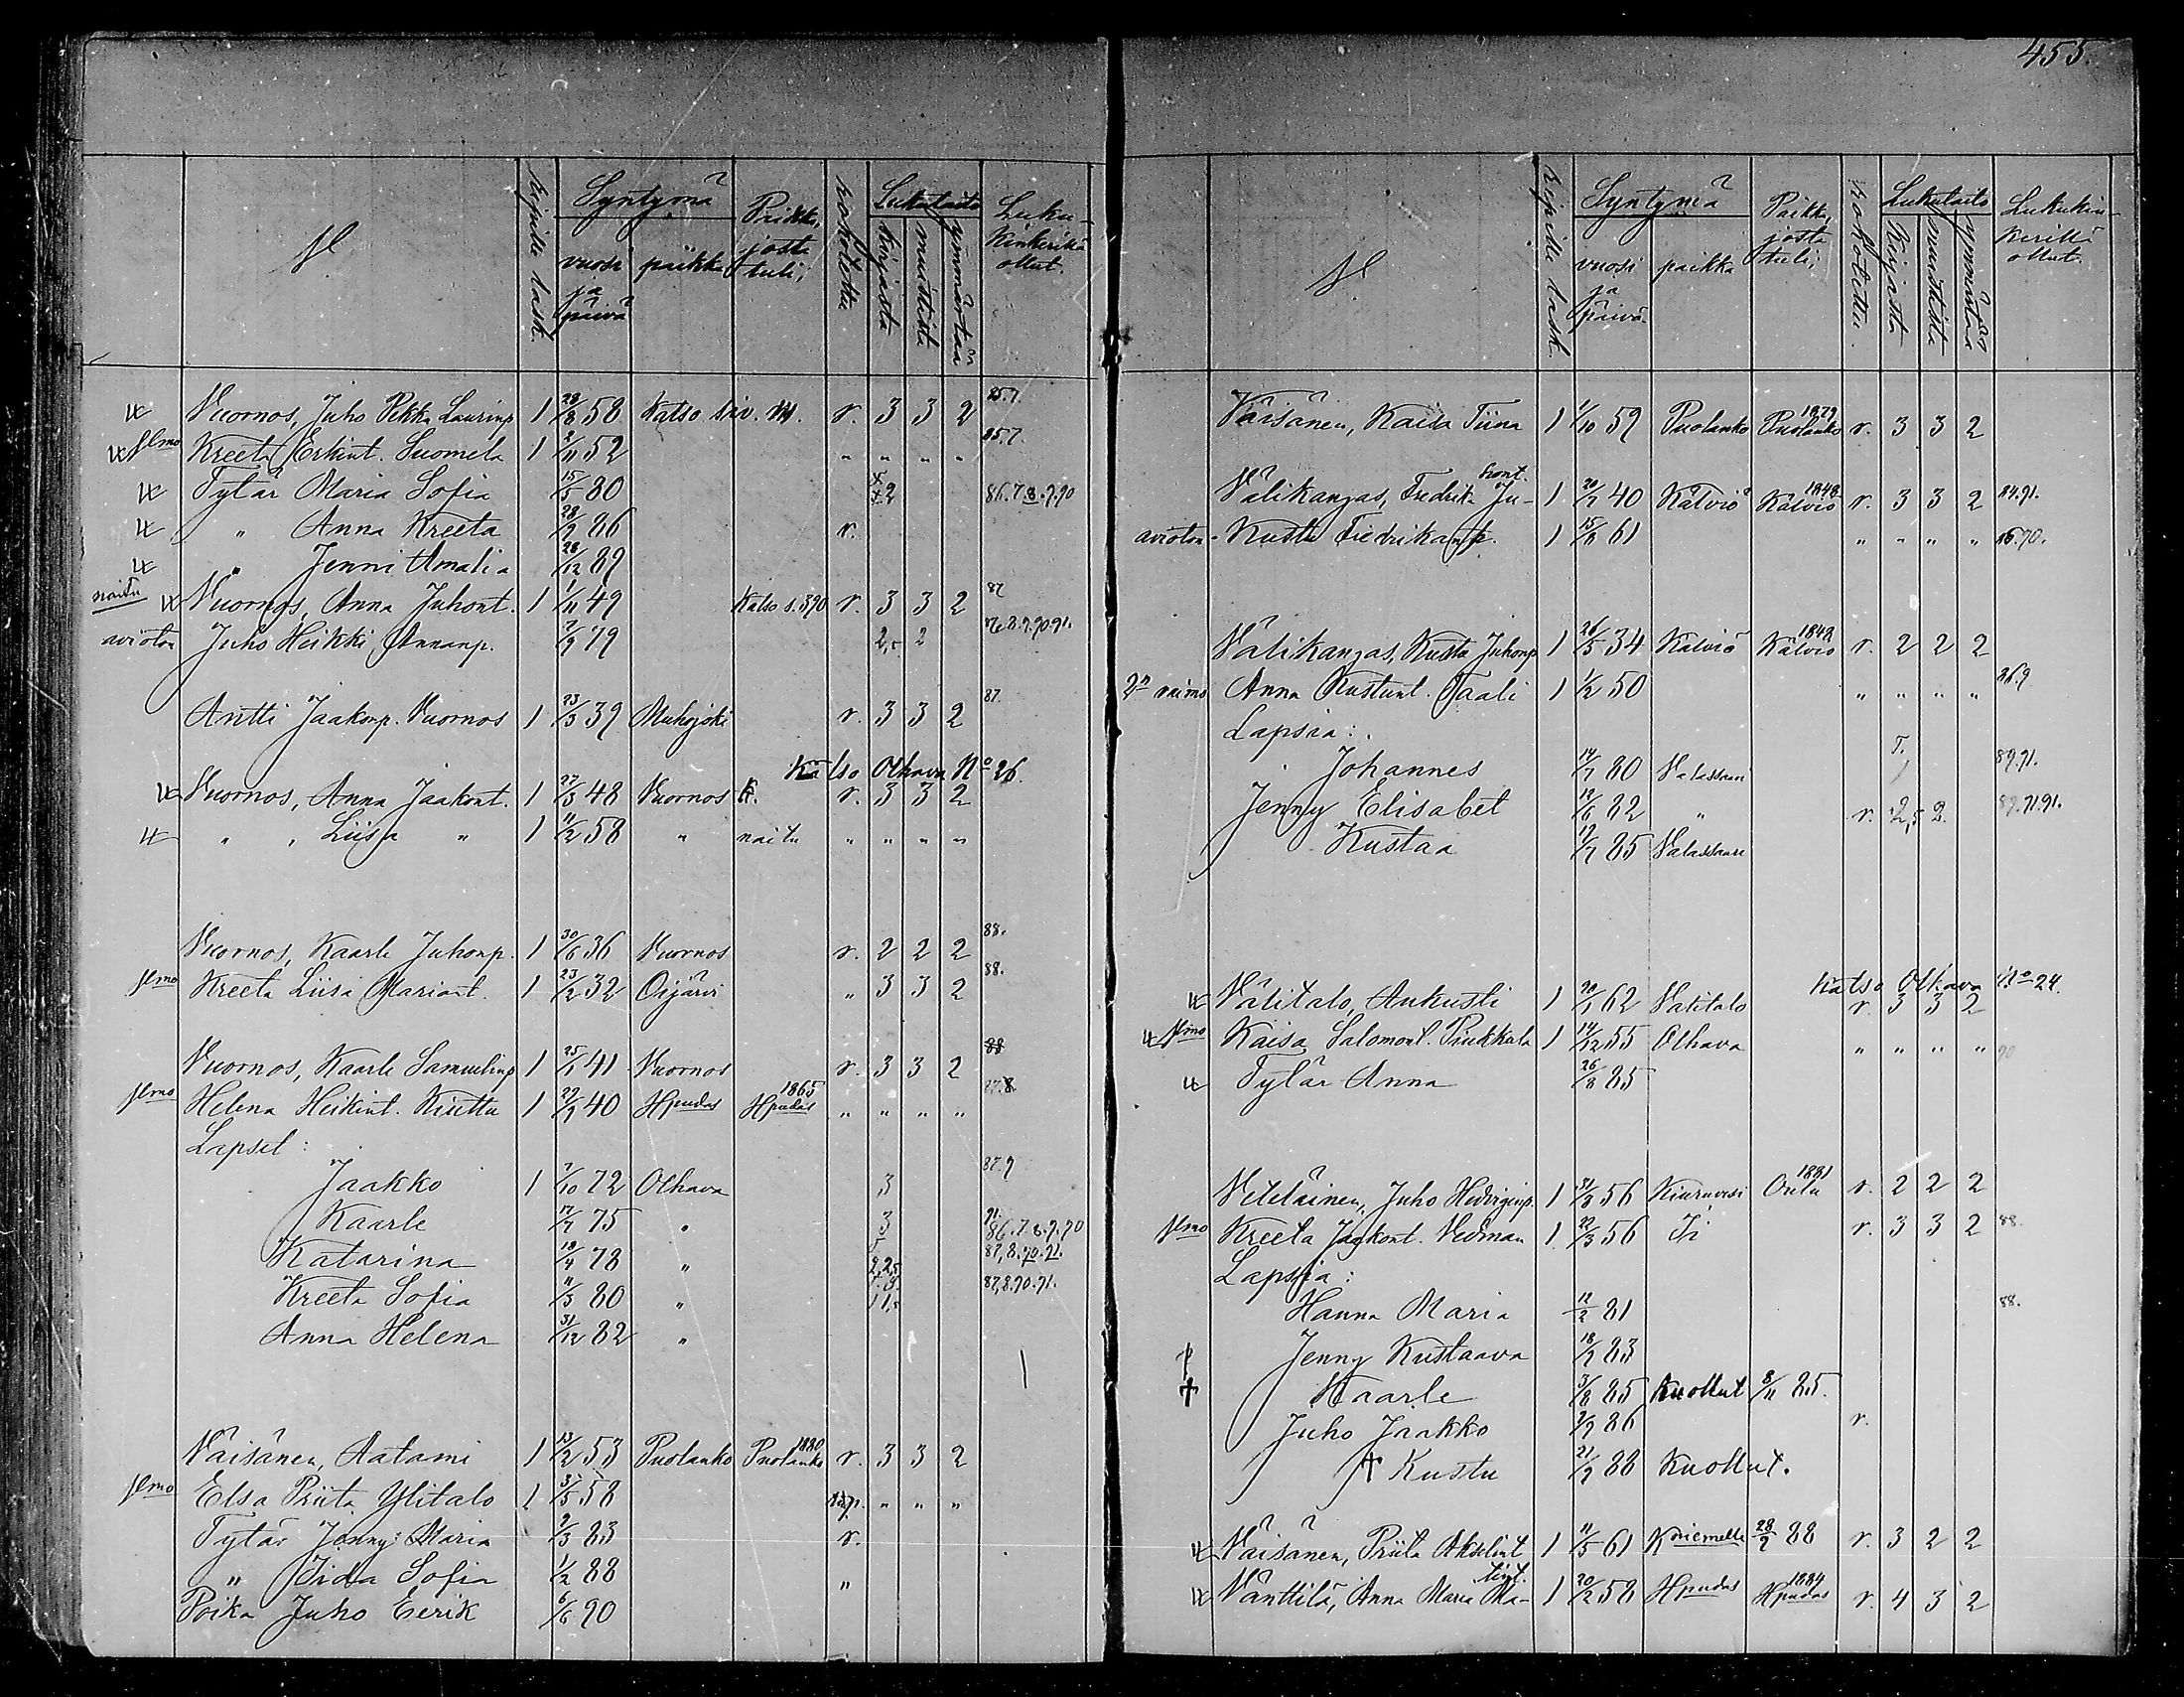 455.
N
Ripille lask.
Syntymä
vuosi ja päivä
paikka
Paikka, josta tuli;
rokotettu
Lukutaito
kirjasta
muistista
ymmärtää
Luku-
kinkerillä
ollut.
Vuornos, Juho Pekka Laurinp 1 28/8 58 Katso siv. r. 3 3 2 85.7.
Kreeta Erkint. Suomela 1 2/11 52 " " " " 85.7.
Tytär Maria Sofia 15/5 80 86.7.8.9.90
" Anna Kreeta 28/9 86 r.
" Jenni Amalia 28/12 89
naitu Vuornos, Anna Juhont. 1 1/11 49 Katso s. 390 r. 3 3 2 87
avioton Juho Heikki, Annanp. 7/9 79 2,5 2
Antti Jaakonp. Vuornos 1 23/3 39 Muhojoki r. 3 3 2 87.
Katso Olhava No 26.
Vuornos, Anna Jaakont. 1 27/3 48 Vuornos r. 3 3 2
" , Liisa " 1 11/2 58 " naitu " " " "
Vuornos, Kaarle Juhonp. 1 30/6 36 Vuornos r. 2 2 2 88.
Vmo Kreeta Liisa Mariant. 1 23/2 32 Oijärvi " 3 3 2 88.
Vuornos, Kaarle Samuelinp 1 25/1 41 Vuornos r. 3 3 2 88
Vmo Helena Heikint. Kiuttu 1 22/9 40 Hpudas 1865 Hpudas " " " " 87.8
Lapset:
Jaakko 1 7/10 72 Olhava 3 87.9
Kaarle 17/7 75 " 3 91. 86.7.8.9.90
Katarina 18/4 78 " 2,25 87,8.90.91.
Kreeta Sofia 11/5 80 " 87,8.90.91.
Anna Helena 31/12 82 "
Väisänen, Aatami 1 13/2 53 Puolanko 1880 Puolanko r. 3 3 2
Vmo Elsa Priita Ylitalo 1 3/5 58 " " "
Tytär Jenny Maria 2/3 83 r.
" Iida Sofia 1/2 88 "
Poika Juho Eerik 6/6 90
N
Ripille lask.
Syntymä
vuosi ja päivä.
paikka
Paikka, josta tuli;
rokotettu.
Lukutaito
kirjasta
muistista
ymmärtää
Lukukin-
kerillä
ollut.
Väisänen, Kaisa Tiina 1 1/10 59 Puolanko 1879 Puolanko r. 3 3 2
Välikangas, Fredrika Ju-hont. 1 20/7 40 Kälviö 1848 Kälviö r. 3 3 2 84.91.
avioton Kustu Fredrikanp. 1 15/8 61 " " " " 86.90.
Välikangas, Kusta Juhonp 1 26/5 34 Kälviö 1848 Kälviö r. 2 2 2
2n vaimo Anna Kustunt. Paali 1 1/2 50 " " " " 86.9
Lapsia:
Johannes 14/7 80 Valassaari T. 89.91.
Jenny Elisabet 12/6 82 " r. 2,5 2.
Kustaa 17/7 85 Valassaari
Katso Olhava No 24.
Välitalo, Aukusti 1 20/1 62 Välitalo r. 3 3 2
Vmo Kaisa Salomont. Pinkkala 1 14/12 55 Olhava " " " " 90
Tytär Anna 26/8 85
Veteläinen, Juho Hedviginp. 1 31/3 56 Kiuruvesi 1881 Oulu r. 2 2 2
Vmo Kreeta Jaakont. Vedman 1 22/3 56 Ii r. 3 3 2 88.
Lapsia:
Hanna Maria 12/2 81 88.
Jenny Kustaava 18/2 83
† Kaarle 3/8 85 Kuollut 8/11 85.
Juho Jaakko 2/9 86 r.
† Kustu 21/9 88 Kuollut.
Väisänen, Priita Akselint 1 11/5 61 Kniemelle 28/2 88 r. 3 2 2
Vänttilä, Anna Maria Ma-tint. 1 20/2 58 Hpudas 1884 Hpudas r. 4 3 2